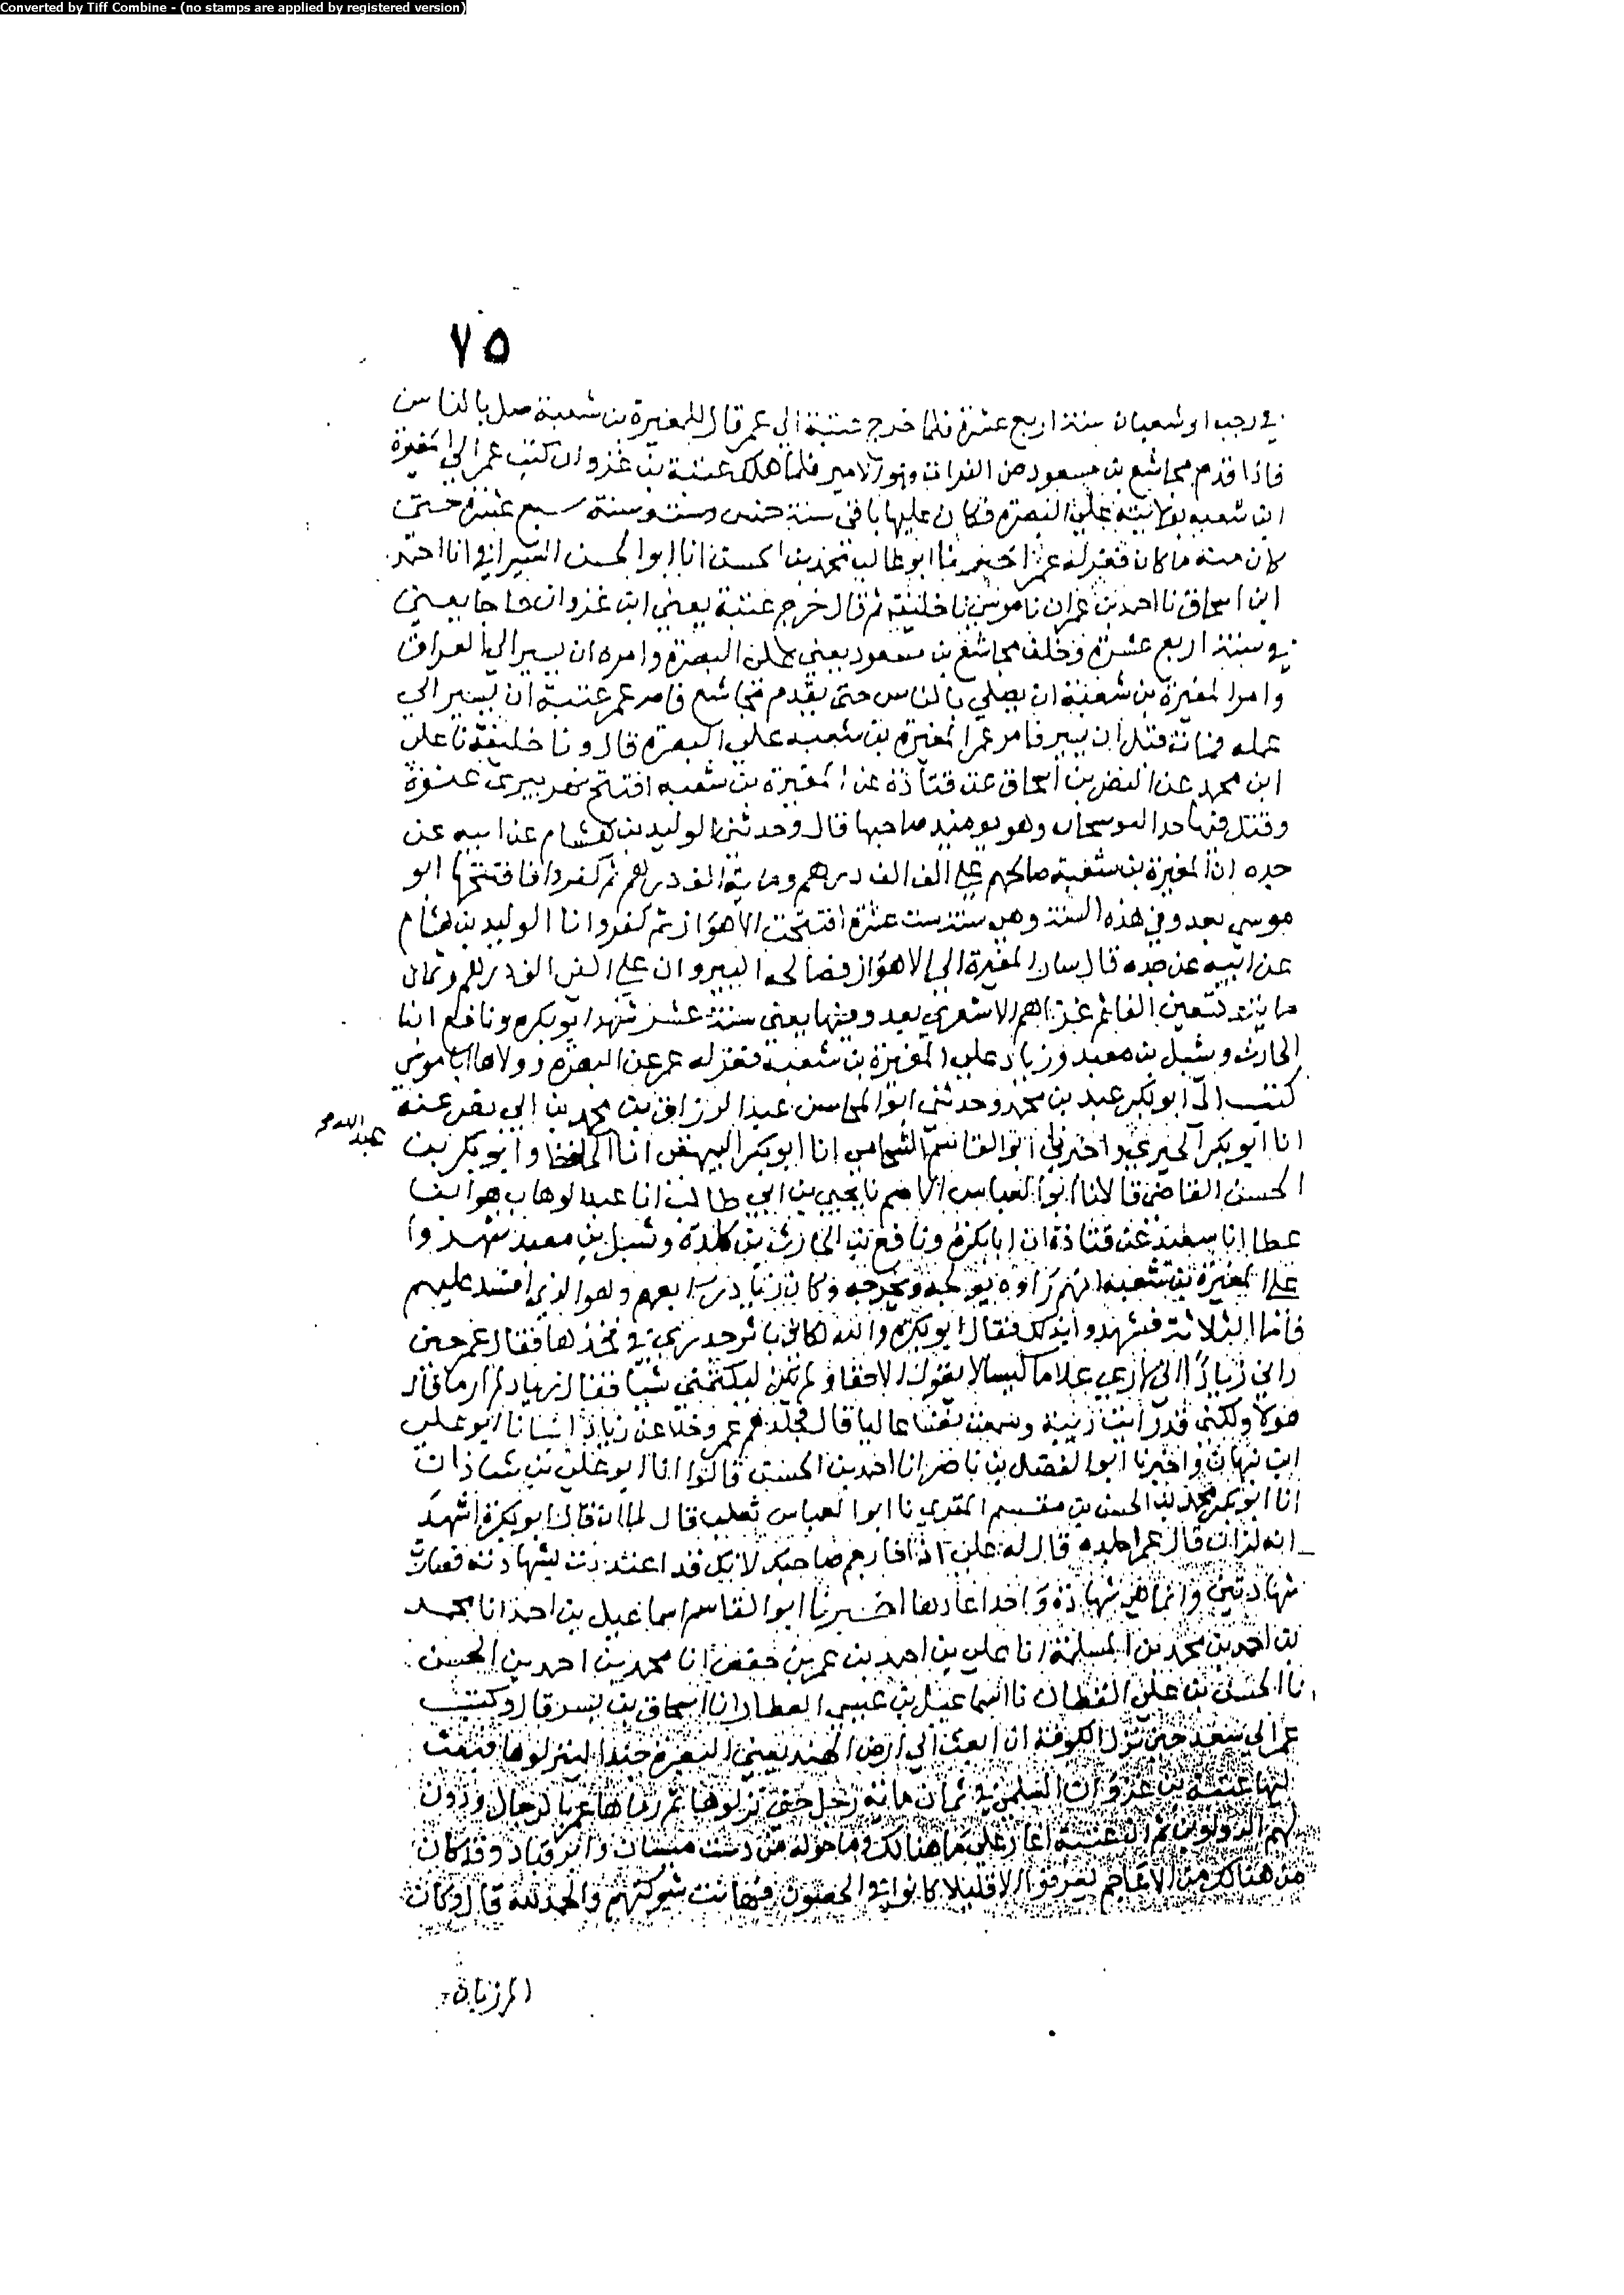 Converted by Tiff Combine - (no stamps are applied by registered version)
٧٥
في رجب او شعبان سنة اربع عشرة فلما خرج عتبة الي عمر قال للمغيرة بن شعبة صل بالناس
فاذا قدم مجاشع بن مسعود من الفرات وهو الامير فلما هلك عتبة بن غزوان كتب عمر الي المغيرة
ابن شعبه بولايته علي البصرة فكان عليها باقي سنة خمس وست وسنة سبع عشرة حتى
كان منه ما كان فعزله عمر اخبرنا ابو غالب محمد بن الحسن انا ابو الحسن السيرافي انا احمد
ابن اسحاق نا احمد بن عمران نا موسى نا خليفة ثم قال خرج عتبة يعني ابن غزوان حاجا يعني
في سنة اربع عشرة وخلف مجاشع بن مسعود يعني على البصرة وامره ان يسير الي الفرات
وامر المغيرة بن شعبة ان يصلي بالناس حتى يقدم مجاشع فامر عمر عتبة ان يسير الي
عمله فمات قبل ان يسير فامر عمر المغيرة بن شعبه على البصرة قال ونا خليفة نا على
ابن محمد عن النضر بن اسحاق عن قتادة عن المغيرة بن شعبه افتتح نهر تيرى عنوة
وقتل فيها وهو يومئذ صاحبها قال وحدثني الوليد بن هشام عن ابيه عن
جده ان المغيرة بن شعبة صالحهم علي الف الف درهم وماية الف درهم ثم كفروا فافتتحها ابو
موسى بعد وفي هذه السنة وهي سنة ست عشرة افتتحت الاهواز ثم كفروا نا الوليد بن هشام
عن ابيه عن جده قال سار المغيرة الي الاهواز فصالحه البيروان علي الفي الف درهم وثمان
ماية وتسعين الفا ثم غزاهم الاشعري بعد وفيها يعني سنة عشر شهد ابو بكرة ونافع ابنا
الحارث وشبل بن معبد وزياد على المغيرة بن شعبة فعزله عمر عن البصرة وولاها ابا موسى
كتب الي ابو بكر عبد بن محمد وحدثني ابو المحاسن عبد الرزاق بن محمد بن ابي نصر عنه
عبد الله صح
انا ابو بكر الحيري واخبرنا ابو القاسم الشحامي انا ابو بكر البيهقي انا الحافظ وابو بكر بن
الحسن القاضي قالا نا ابو العباس الاصم نا يحيى بن ابي طالب انا عبد الوهاب هو ابن
عطا انا سعيد عن قتادة ان ابا بكرة ونافع بن الحارث بن كلدة وشبل بن معبد شهدوا
على المغيرة بن شعبه انهم راوه يولجه ويخرجه وكان زياد رابعهم وهو الذي افسد عليهم
فاما الثلاثة فشهدوا بذلك فقال ابو بكرة والله لكاني باثر جدري في فخذها فقال عمر حين
راى زيادا اني لارى غلاما كيسا لا يقول الا حقا ولم يكن ليكتمني شيا فقال زياد لم ار ما قال
هولا ولكني قد رايت ريبة وسمعت نفسا عاليا قال فجلدهم عمر وخلا عن زياد انبانا ابو على
ابن نبهان واخبرنا ابو الفضل بن ناصر انا احمد بن الحسن قالوا انا ابو علي بن شاذان
انا ابو بكر محمد بن الحسن بن مقسم المقري نا ابو العباس ثعلب قال لما ان قال ابو بكرة اشهد
انه لزان قال عمر اجلده قال له علي اذا فارجم صاحبك لانك قد اعتددت بشهادته فصارت
شهادتين وانما هي شهادة واحدا عادها اخبرنا ابو القاسم اسماعيل بن احمد انا محمد
بن احمد بن محمد بن المسلمة انا على بن احمد بن عمر بن حفص انا محمد بن احمد بن الحسن
نا الحسن بن علي القطان نا اسماعيل بن عيسى العطار انا اسحاق بن بشر قال وكتب
عمر الي سعد حين نزل الكوفة ان ابعث الي ارض الهند يعني البصرة جندا لينزلوها فبعث
اليها عتبة بن غزوان السلمي في ثمان ماية رجل حتى نزلوها ثم رماها عمر بالرجال ودون
لهم الدواوين ثم ان عتبة اغار على ما هنالك وما حوله من دست ميسان وابرقباذ وقد كان
من هنالك من الاعاجم تفرقوا الا قليلا كانوا في الحصون فهانت شوكتهم والحمد لله قال وكان
المرزبان